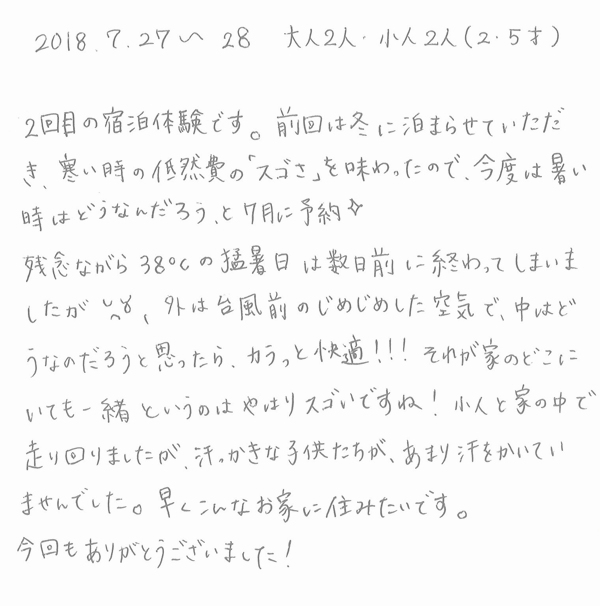 2018.7.27〜28 大人2人・小人2人(2・5才)
2回目の宿泊体験です。前回は冬に泊まらせていただ
き、寒い時の低然費の「スゴさ」を味わったので、今度は暑い
時はどうなんだろう、と7月に予約✧
残念ながら38℃の猛暑日は数日前に終わってしまいま
したが、外は台風前のじめじめした空気で、中はど
うなのだろうと思ったら、カラっと快適!!!それが家のどこに
いても一緒というのはやはりスゴいですね!小人と家の中で
走り回りましたが、汗っかきな子供たちが、あまり汗をかいてい
ませんでした。早くこんなお家に住みたいです。
今回もありがとうございました!